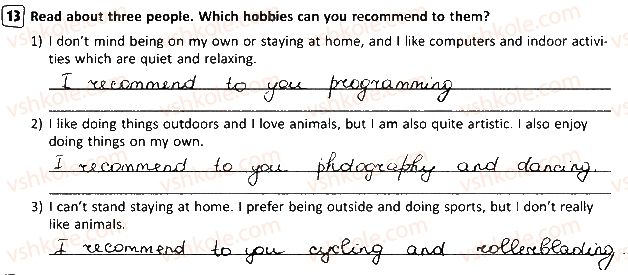 13 Read about three people. Which hobbies can you recommend to them?
1) I don't mind being on my own or staying at home, and I like computers and indoor activi-
ties which are quiet and relaxing.
I recommend to you programming
2) I like doing things outdoors and I love animals, but I am also quite artistic. I also enjoy
doing things on my own.
I recommend to you photography and dancing.
3) I can't stand staying at home. I prefer being outside and doing sports, but I don't really
like animals.
I recommend to you cycling and rollerblading.